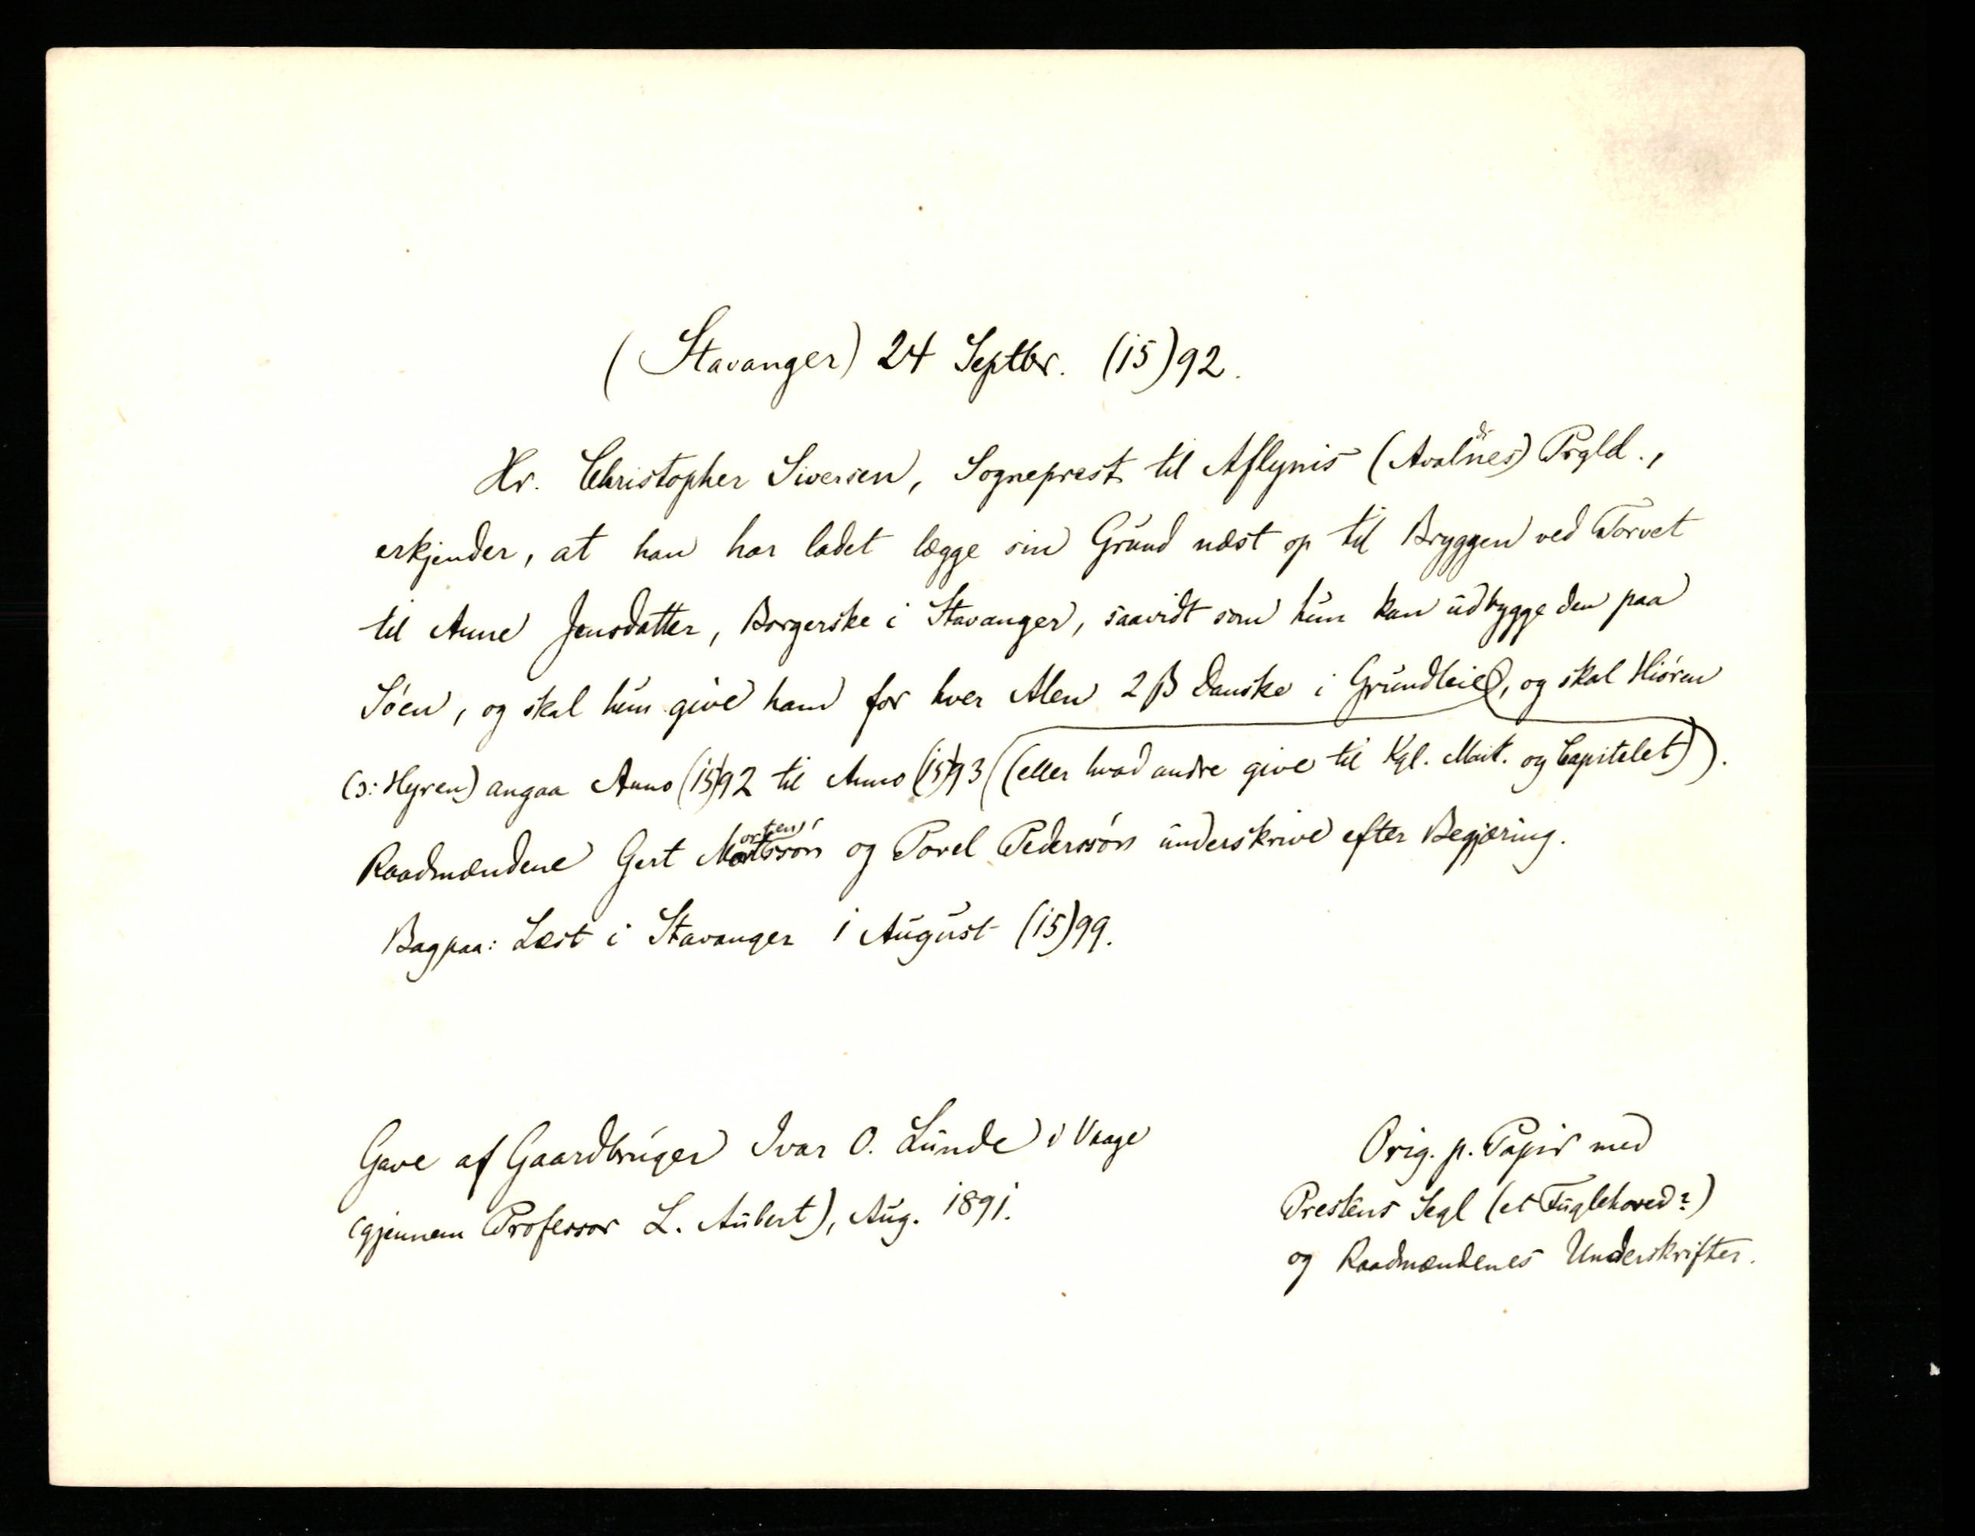 (Stavanger) 24 Septbr. (15)92.
Hr. Christopher Siversen, Sogneprest til Aflynis (Avalnes) Prgld.,
erkjender, at han har ladet lægge sin Grund næst op til Bryggen ved Torvet
til Anne Jensdatter, Borgerske i Stavanger, saavidt som hun kan udbygge den paa
Söen, og skal hun give ham for hver Alen 2 ß Danske i Grundleie, og skal Hiören
(ɔ: Hyren) angaa Anno (15)92 til Anno (15)93 (eller hvad andre give til Kgl. Mait. og Capitelet).
Raadmændene Gert Mortenssön og Povel Pederssön underskrive efter Begjæring.
Bagpaa: Læst i Stavanger 1 August (15)99.
Gave af Gaardbruger Ivar O. Lunde i Vaage
(gjennem Professor L. Aubert), Aug. 1891.
Orig. p. Papir med
Prestens Segl (et Fuglehoved?)
og Raadmændenes Underskrifter.